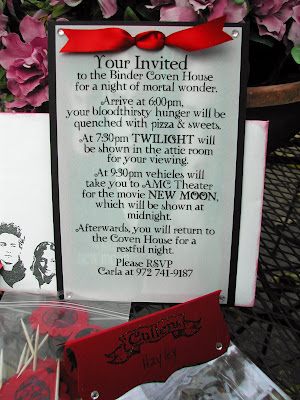 Your Invited
to the Binder Coven House
for a night of mortal wonder.
Arrive at 6:00pm,
your bloodthirsty hunger will be
quenched with pizza & sweets.
At 7:30pm TWILIGHT will
be shown in the attic room
for your viewing.
At 9:30pm vehicles will
take you to AMC Theater
for the movie NEW MOON,
which will be shown at
midnight.
Afterwards, you will return to
the Coven House for a
restful night.
Please RSVP
Carla at 972 741-9187
Cullens
Hayley